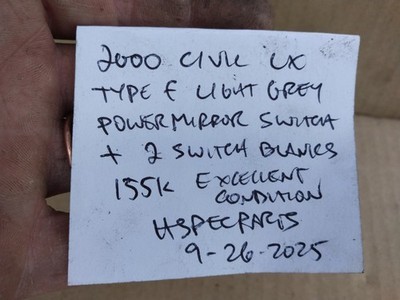 2000 CIVIC LX
TYPE E LIGHT GREY
POWER MIRROR SWITCH
+ 2 SWITCH BLANKS
155K EXCELLENT
CONDITION
HSPECPARTS
9-26-2025